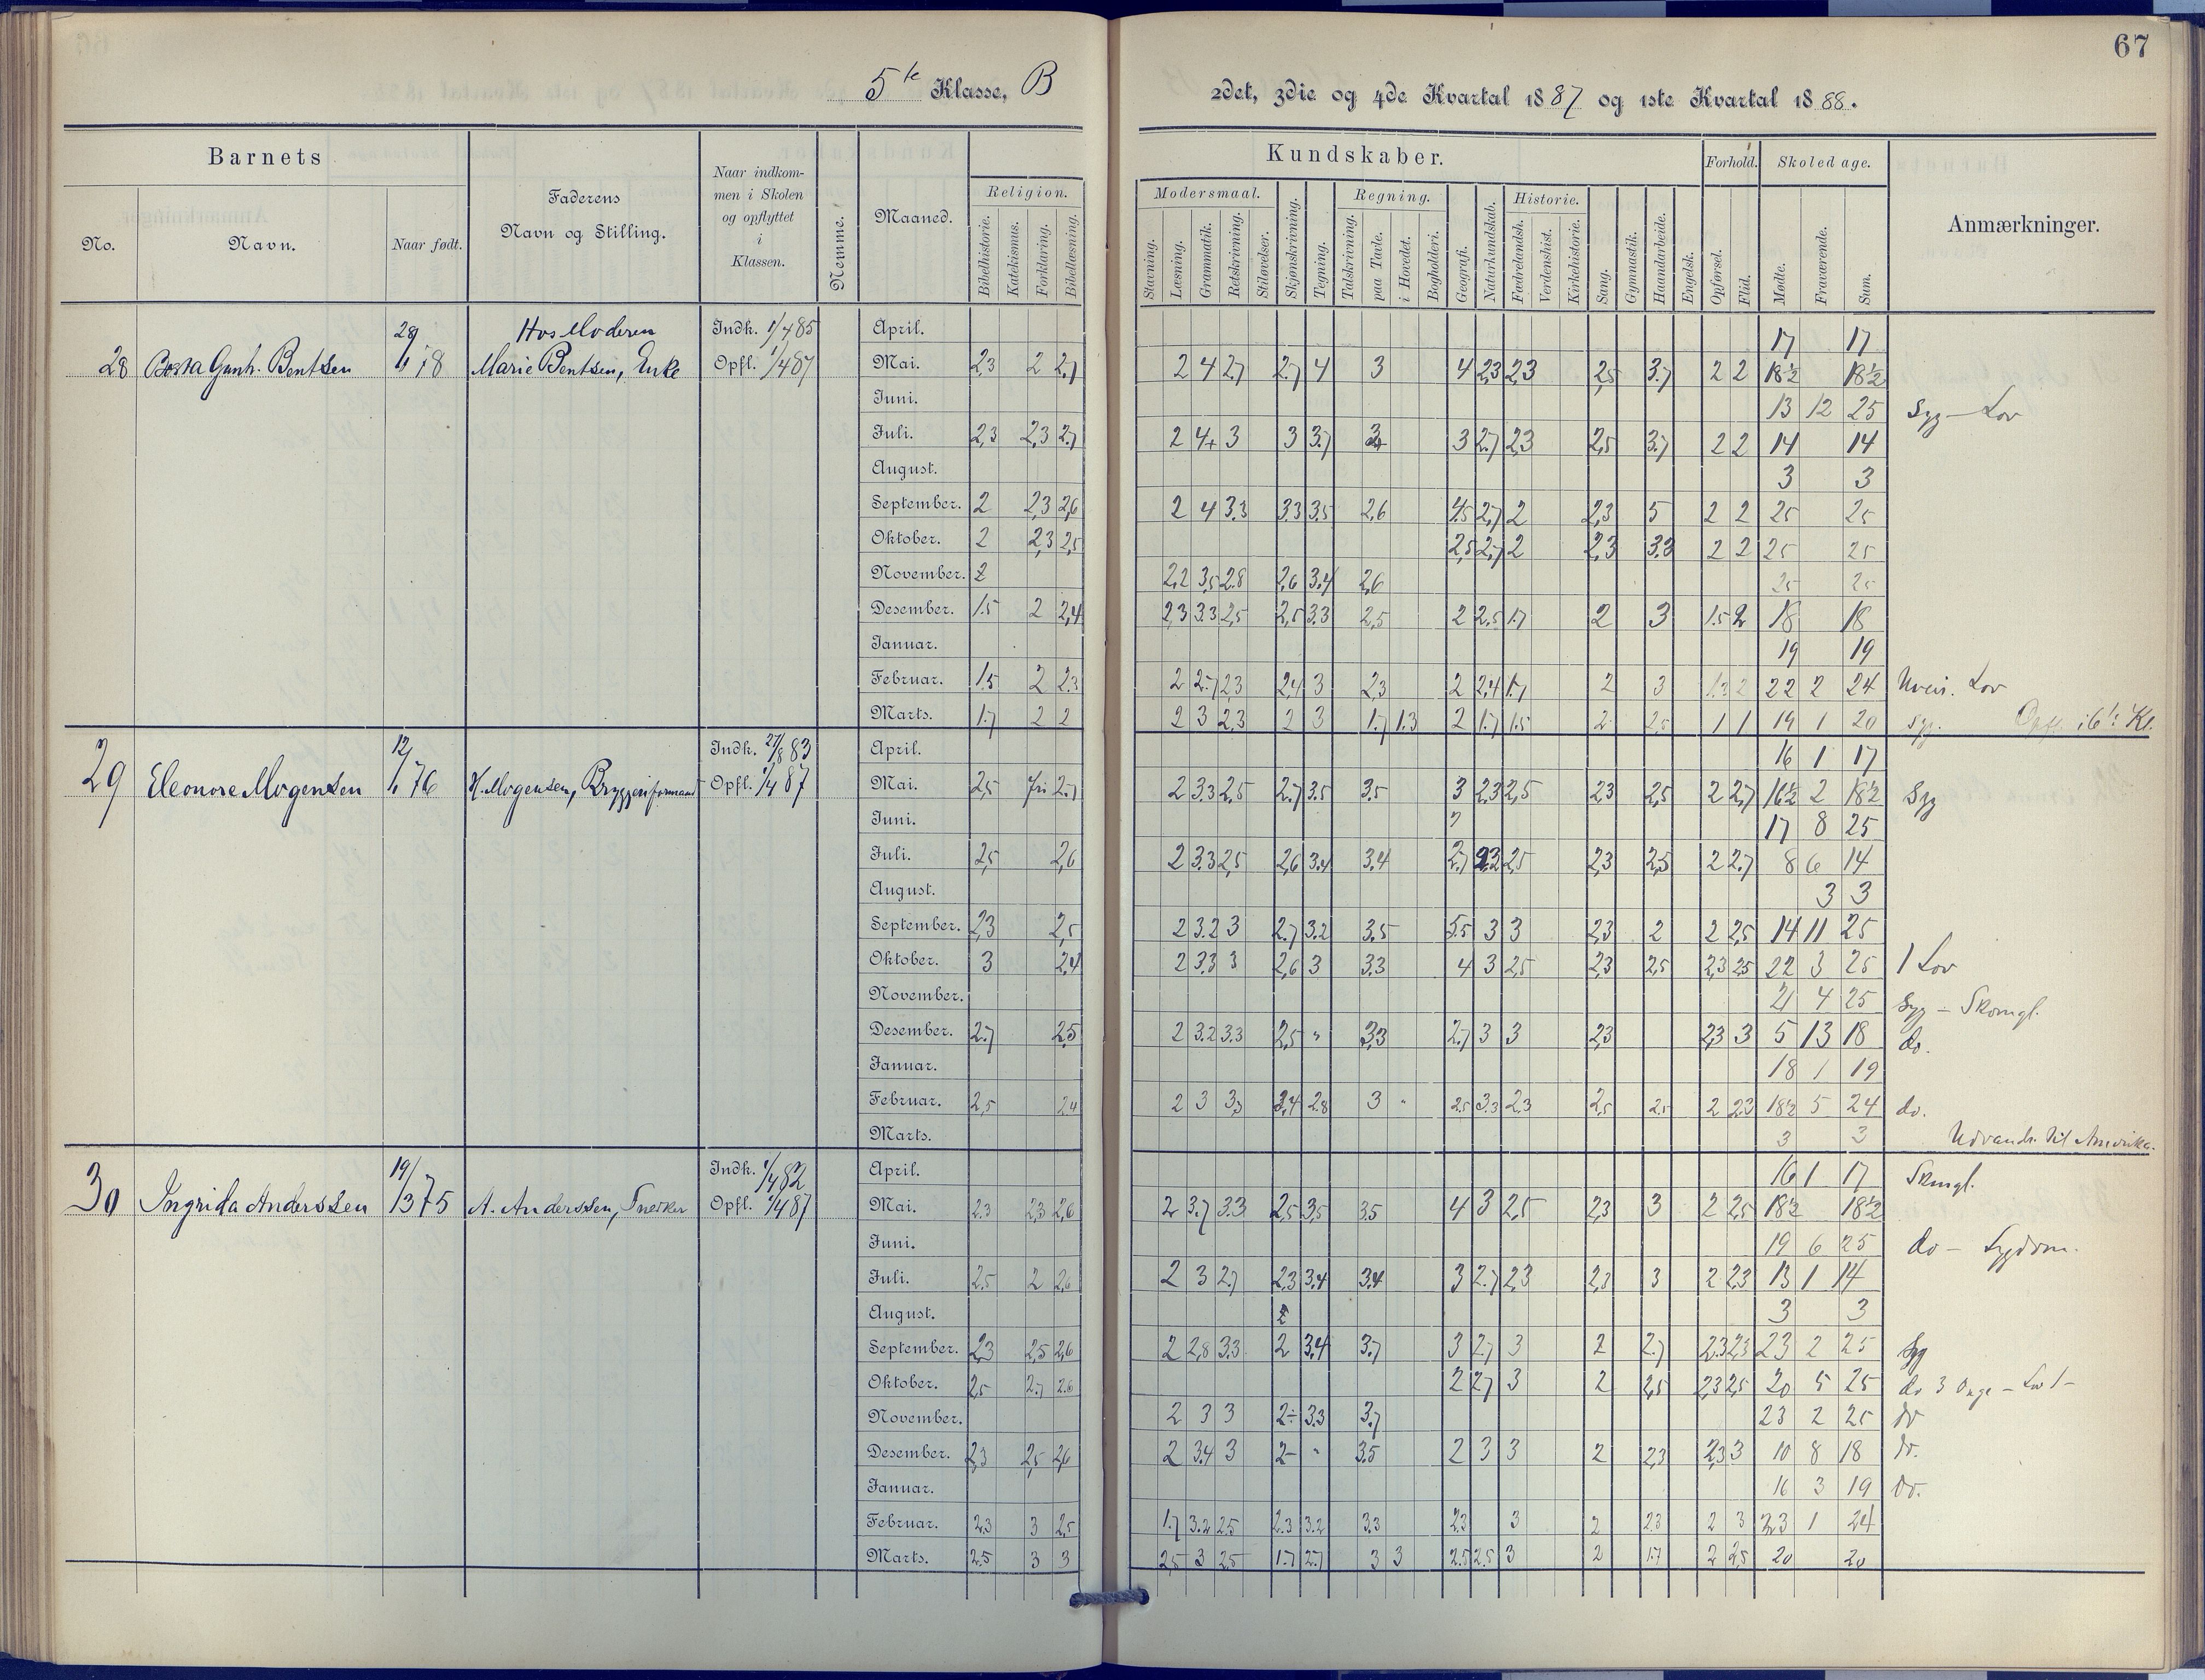 67
5te Klasse, B
2det, 3die og 4de Kvartal 1887 og 1ste Kvartal 1888.
Barnets
No.
Navn.
Naar født.
Faderens
Navn og Stilling.
Naar indkom-
men i Skolen
og opflyttet
i
Klassen.
Nemme.
Maaned.
Religion.
Bibelhistorie. Katekismus. Forklaring. Bibellæsning.
Kundskaber.
Modersmaal.
Stavning. Læsning. Grammatik. Retskrivning. Stiløvelser.
Skjønskrivning. Tegning.
Regning.
Talskrivning. paa Tavle. i Hovedet. Bogholderi.
Geografi. Naturkundskab.
Historie.
Fædrelandsh. Verdenshist. Kirkehistorie.
Sang. Gymnastik. Haandarbeide. Engelsk.
Forhold.
Opførsel. Flid.
Skoledage.
Mødte. Fraværende. Sum.
Anmærkninger.
Hos Moderen Indk. 1/4 85 April. 17 17
28 Gunh. Bentsen Marie Bentsen, Enke Opfl. 1/4 87 Mai. 2,3 2 2,7 2 4 2,7 2,7 4 3 4 2,3 2,3 2,5 3,7 2 2 18½ 18½
Juni. 13 12 25 Syg – Lov
Juli. 2,3 2,3 2,7 2 4+ 3 3 3,7 3 2,7 2,3 2,5 3,7 2 2 14 14
August. 3 3
September. 2 2,3 2,6 2 4 3,3 3,3 3,5 2,6 4,5 2,7 2 2,3 5 2 2 25 25
Oktober. 2 2,3 2,5 2,5 2,7 2 2,3 3,3 2 2 25 25
November. 2 2,2 3,5 2,8 2,6 3,4 2,6 25 25
Desember. 1,5 2 2,4 2,3 3,3 2,5 2,5 3,3 2,5 2 2,5 1,7 2 3 1,5 2 18 18
Januar. 19 19
Februar. 1,5 2 2,3 2 2,7 2,3 2,4 3 2,3 2 2,4 1,7 2 3 2 22 2 24 Lov
Marts. 1,7 2 2 2 3 2,3 2 3 1,7 1,3 2 1,7 1,5 2 2,5 1 1 19 1 20 Syg. Opfl. i 6te Kl.
12/ Indk. 27/8 83 April. 16 1 17
29 Eleonore Mogensen 1 76 H. Mogensen, Bryggeriformand Opfl. 1/4 87 Mai. 2,5 fri 2,7 2 3,3 2,5 2,7 3,5 3,5 3 2,3 2,5 2,3 2,5 2 2,7 16½ 2 18½ Syg
Juni. 17 8 25
Juli. 2,5 2,6 2 3,3 2,5 2,6 3,4 3,4 2,7 2,3 2,5 2,3 2,5 2 2,7 8 6 14
August. 3 3
September. 2,3 2,5 2 3,2 3 2,7 3,2 3,5 3,5 3 3 2,3 2 2 2,5 14 11 25
Oktober. 3 2,4 2 3,3 3 2,6 3 3,3 4 3 2,5 2,3 2,5 2,3 2,5 22 3 25 1 Lov
November. 21 4 25 Syg – Skomgl.
Desember. 2,7 2,5 2 3,2 3,3 2,5 " 3,3 2,7 3 3 2,3 2,3 3 5 13 18 do.
Januar. 18 1 19
Februar. 2,5 2,4 2 3 3,3 2,4 2,8 3 " 2,5 3,3 2,3 2,5 2,5 2 2,3 18½ 5 24 do.
Marts. 3 3 Udvandr. til Amerika.
19/ Indk. 1/4 82 April. 16 1 17 Skmgl.
30 Ingrida Anderssen 3 75 A. Anderssen, Snekker Opfl. 1/4 87 Mai. 2,3 2,3 2,6 2 3,7 3,3 2,5 3,5 3,5 4 3 2,5 2,3 3 2 2,5 18½ 18½
Juni. 19 6 25 do – Sygdom.
Juli. 2,5 2 2,6 2 3 2,7 2,3 3,4 3,4 3 2,7 2,3 2,3 3 2 2,3 13 1 14
August. 3 3
September. 2,3 2,5 2,6 2 2,8 3,3 2 3,4 3,7 3 2,7 3 2 2,7 2,3 2,3 23 2 25 Syg
Oktober. 2,5 2,7 2,6 2 2,7 3 2 2,5 2,3 2,5 20 5 25 do 3 – Lov 1 –
November. 2 3 3 2÷ 3,3 3,7 23 2 25 do
Desember. 2,3 2,5 2,6 2 3,4 3 2– " 3,5 2 3 3 2 2,3 2,3 3 10 8 18 do.
Januar. 16 3 19 do.
Februar. 2,3 3 2,5 1,7 3,2 2,5 2,3 3,2 3,3 2,3 3 2 2,3 2 3 23 1 24
Marts. 2,5 3 3 2,5 3 2,5 1,7 2,7 3 3 2,5 2,5 3 2 1,7 2 2,5 20 20